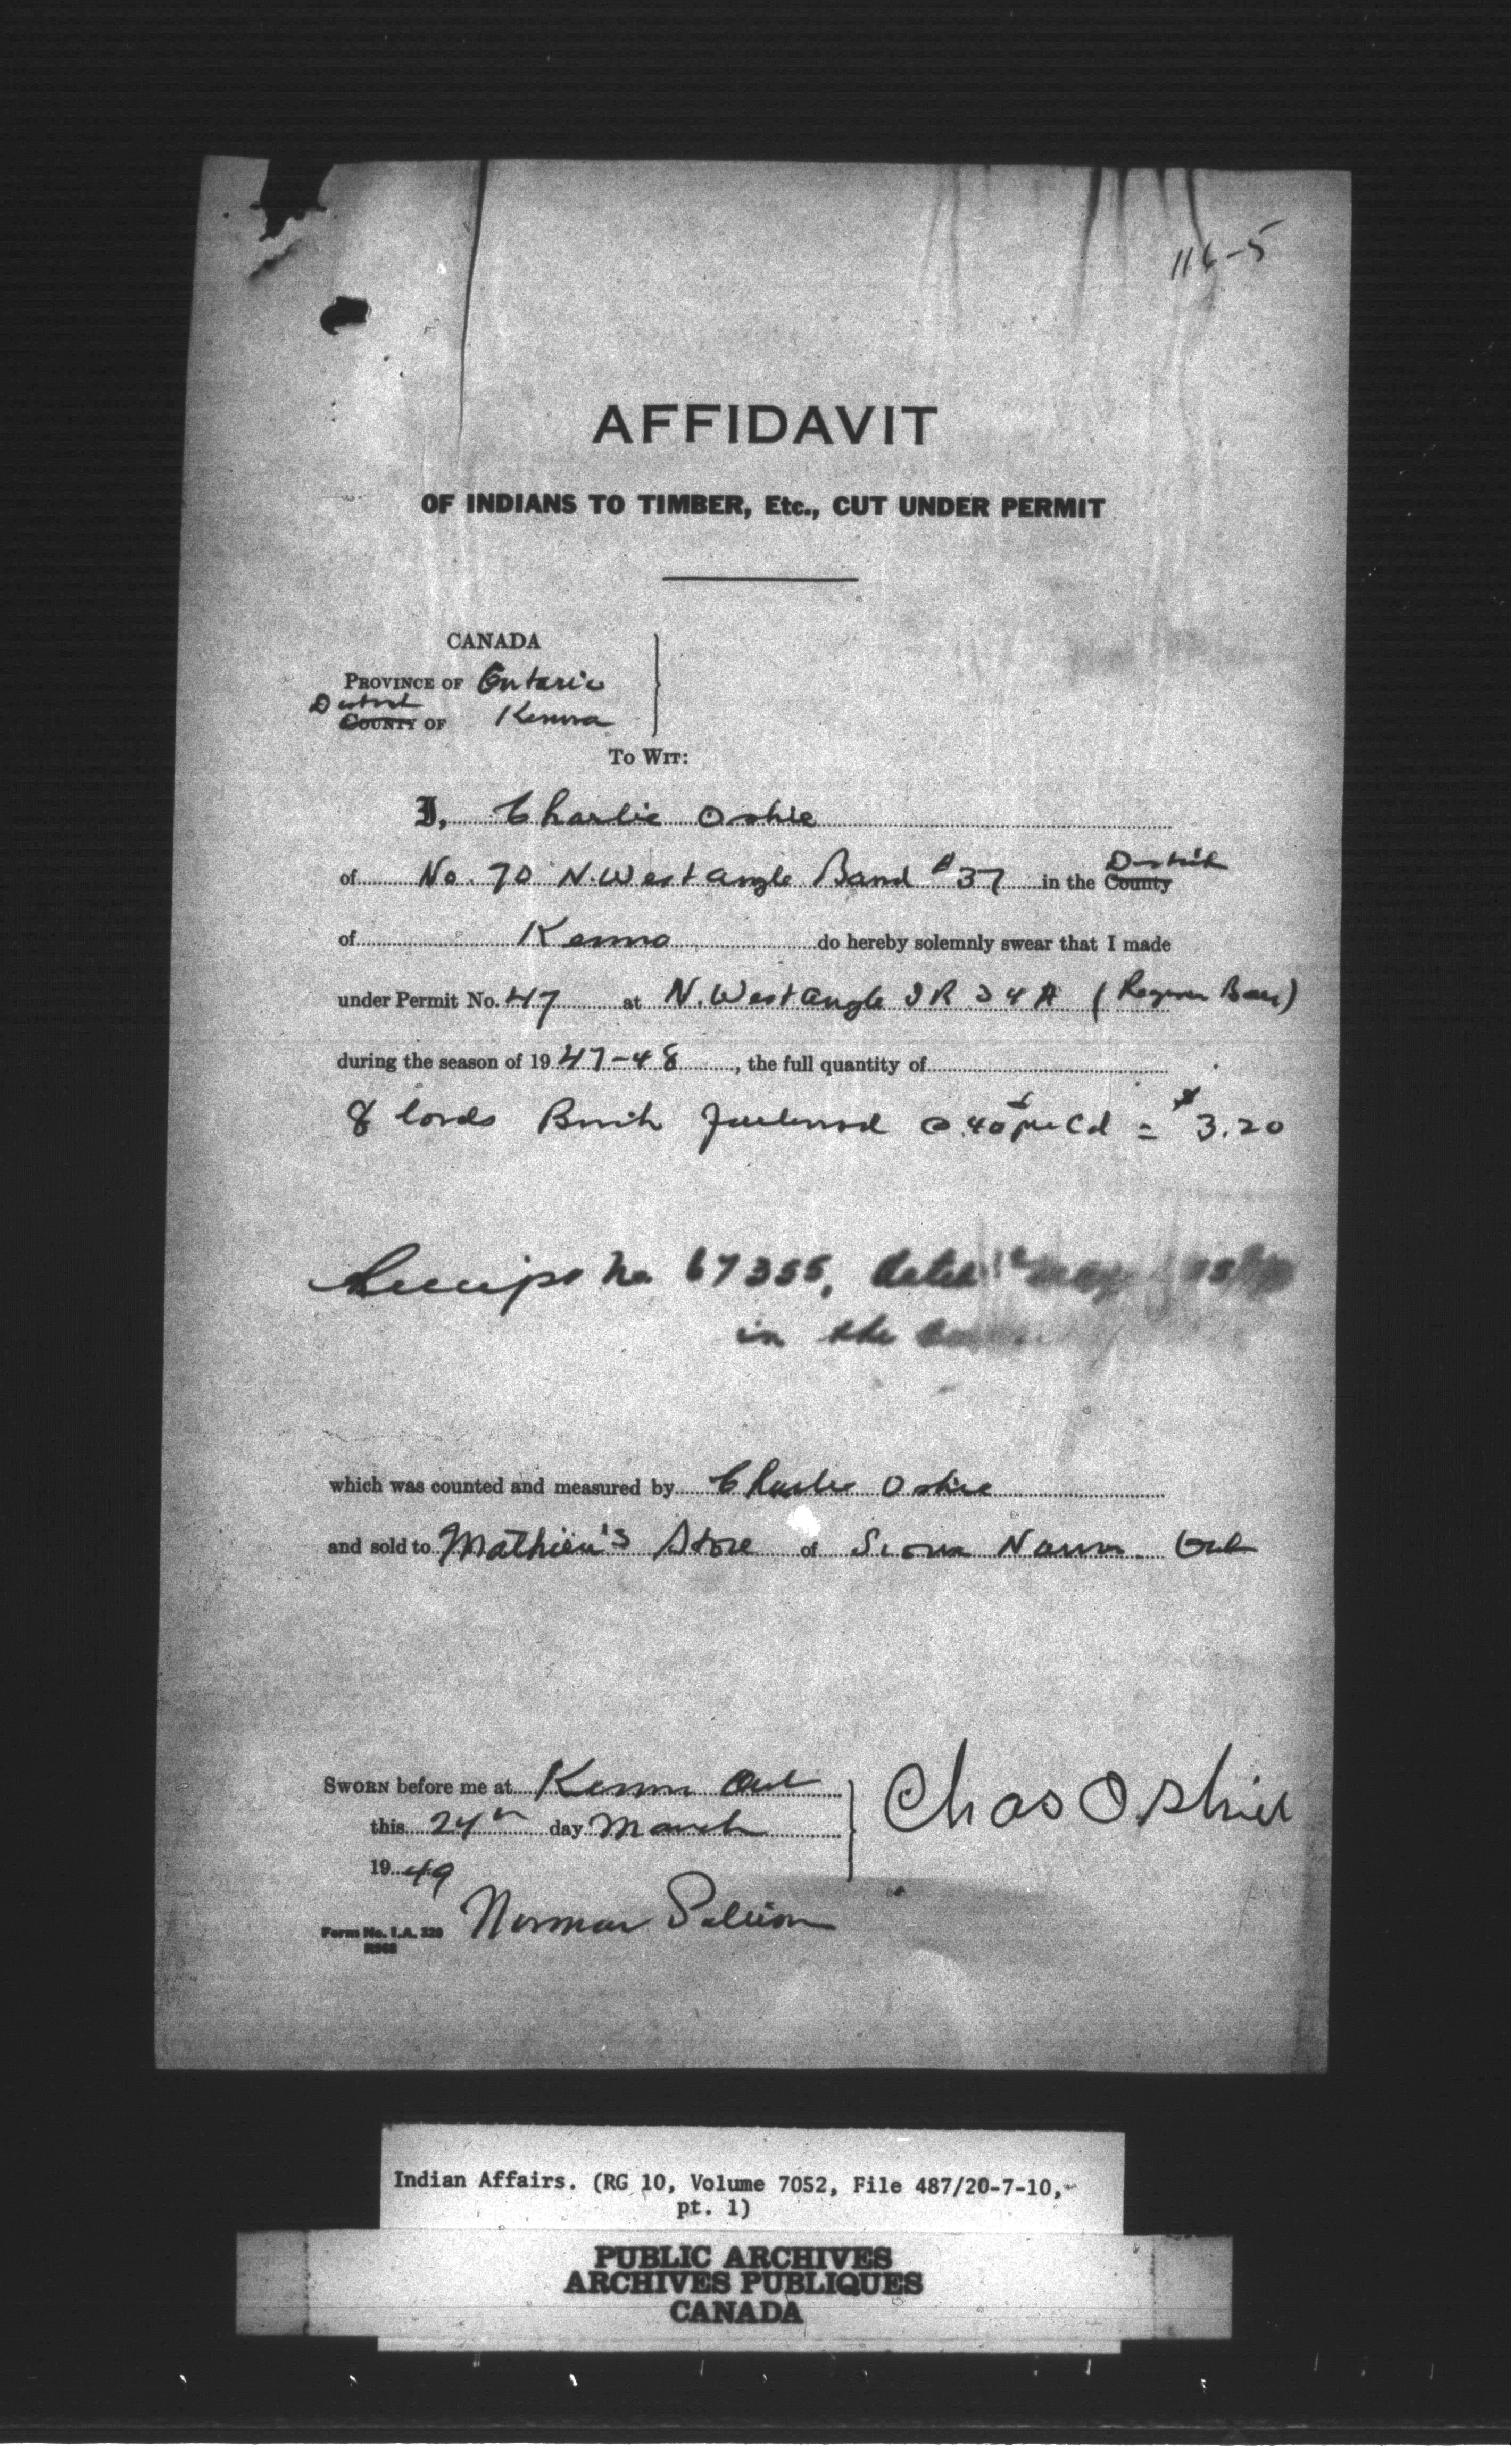 116-5
AFFIDAVIT
OF INDIANS TO TIMBER, Etc., CUT UNDER PERMIT
CANADA
PROVINCE OF Ontario
District
COUNTY OF Kenora
TO WIT:
I, Charlie Oshie
of No. 70 N. West Angle Band #37 in the County District
of Kenora do hereby solemnly swear that I made
under Permit No. 47 at N. West Angle I R 34A ( Bay)
during the season of 1947-48, the full quantity of
8 Cords Birch Fuelwood @ .40¢ per Cd = $3.20
Receipt No 67355, dated May
in the
which was counted and measured by Charlie Oshie
and sold to Mathieu's Store of Sioux Narrows. Ont
SWORN before me at Kenora Ont
this 24th day March
1949
Chas Oshie
Norman
Form No. I.A. 320
R968
Indian Affairs. (RG 10, Volume 7052, File 487/20-7-10,
pt. 1)
PUBLIC ARCHIVES
ARCHIVES PUBLIQUES
CANADA